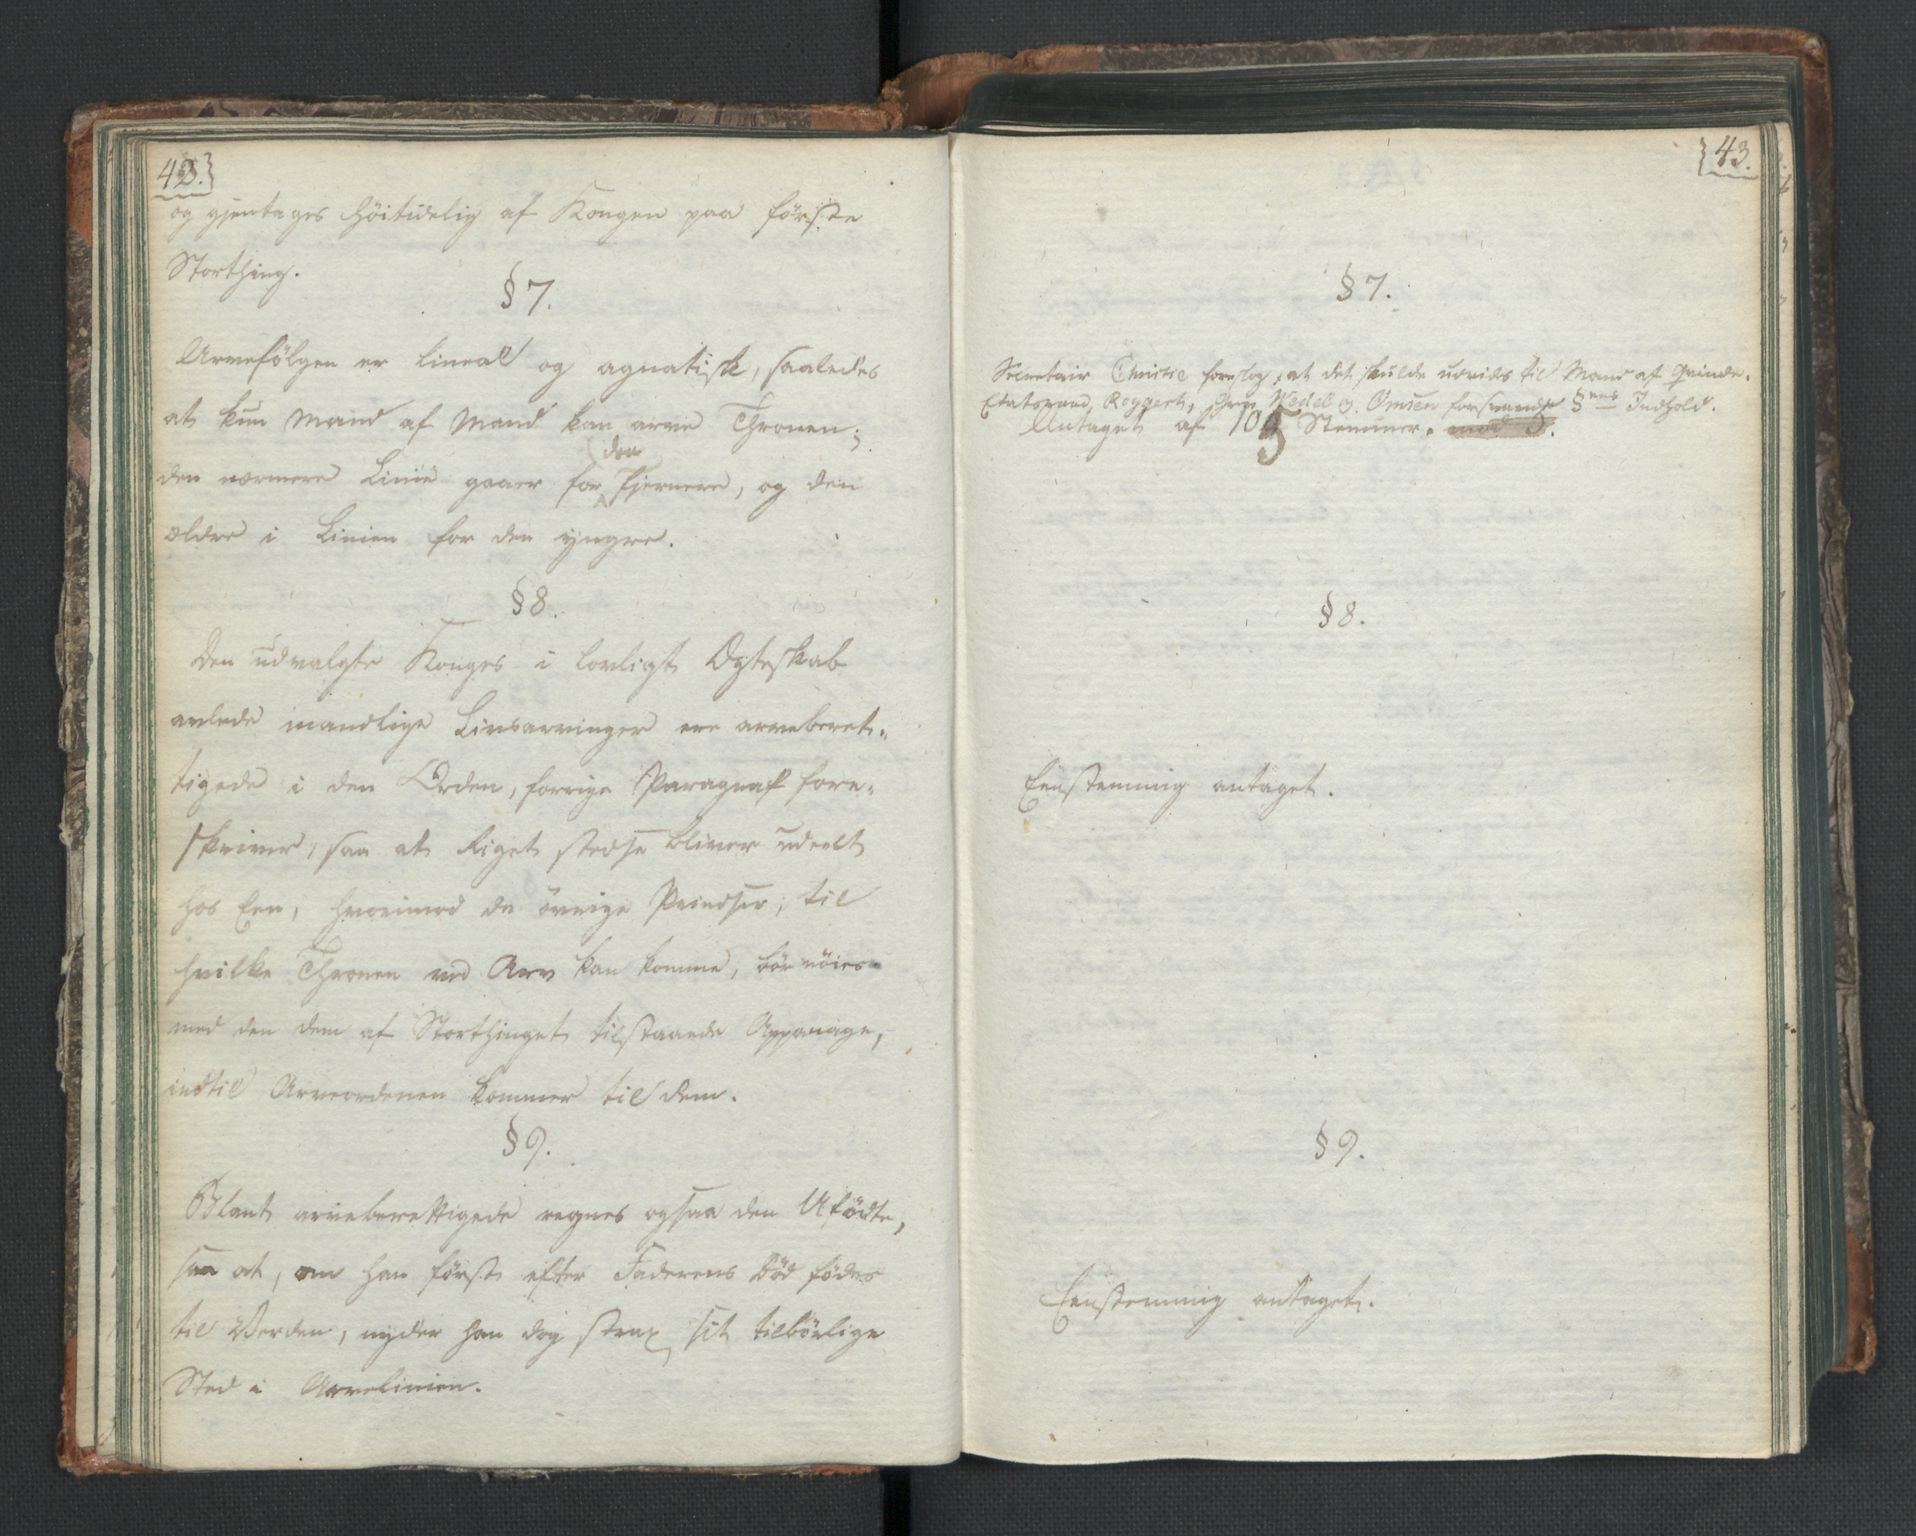 42.
og gjentages höitidelig af Kongen paa förste
Storthing.
§ 7.
Arvefölgen er lineal og agnatisk, saaledes
at kun Mand af Mand kan arve Thronen;
den nærmere Linie gaaer for den fjernere, og den
ældre i Linien for den yngre.
§ 8.
Den udvalgte Konges i lovligt Ægteskab
avlede mandlige Livsarvinger ere arveberet-
tigede i den Orden, forrige Paragraf fore-
skriver, saa at Riget stedse bliver udeelt
hos Een, hvorimod de övrige Prindser, til
hvilke Thronen ved Arv kan komme, bör nöies
med den dem af Storthinget tilstaaede Appanage,
indtil Arveordenen kommer til dem.
§ 9.
Blant arveberettigede regnes ogsaa den Ufödte,
saa at, om han först efter Faderens Död födes
til Verden, nyder han dog strax sit tilbörlige
Sted i Arvelinien.
43.
§ 7.
Secretair Christie foreslog, at det skulde udvides til Mand af Qvinde.
Etatsraad Rogert, Grev Wedel og Omsen forsvarede §ens Indhold.
Antaget af 105 Stemmer. mod 5.
§ 8.
Eenstemmig antaget.
§ 9.
Eenstemmig antaget.